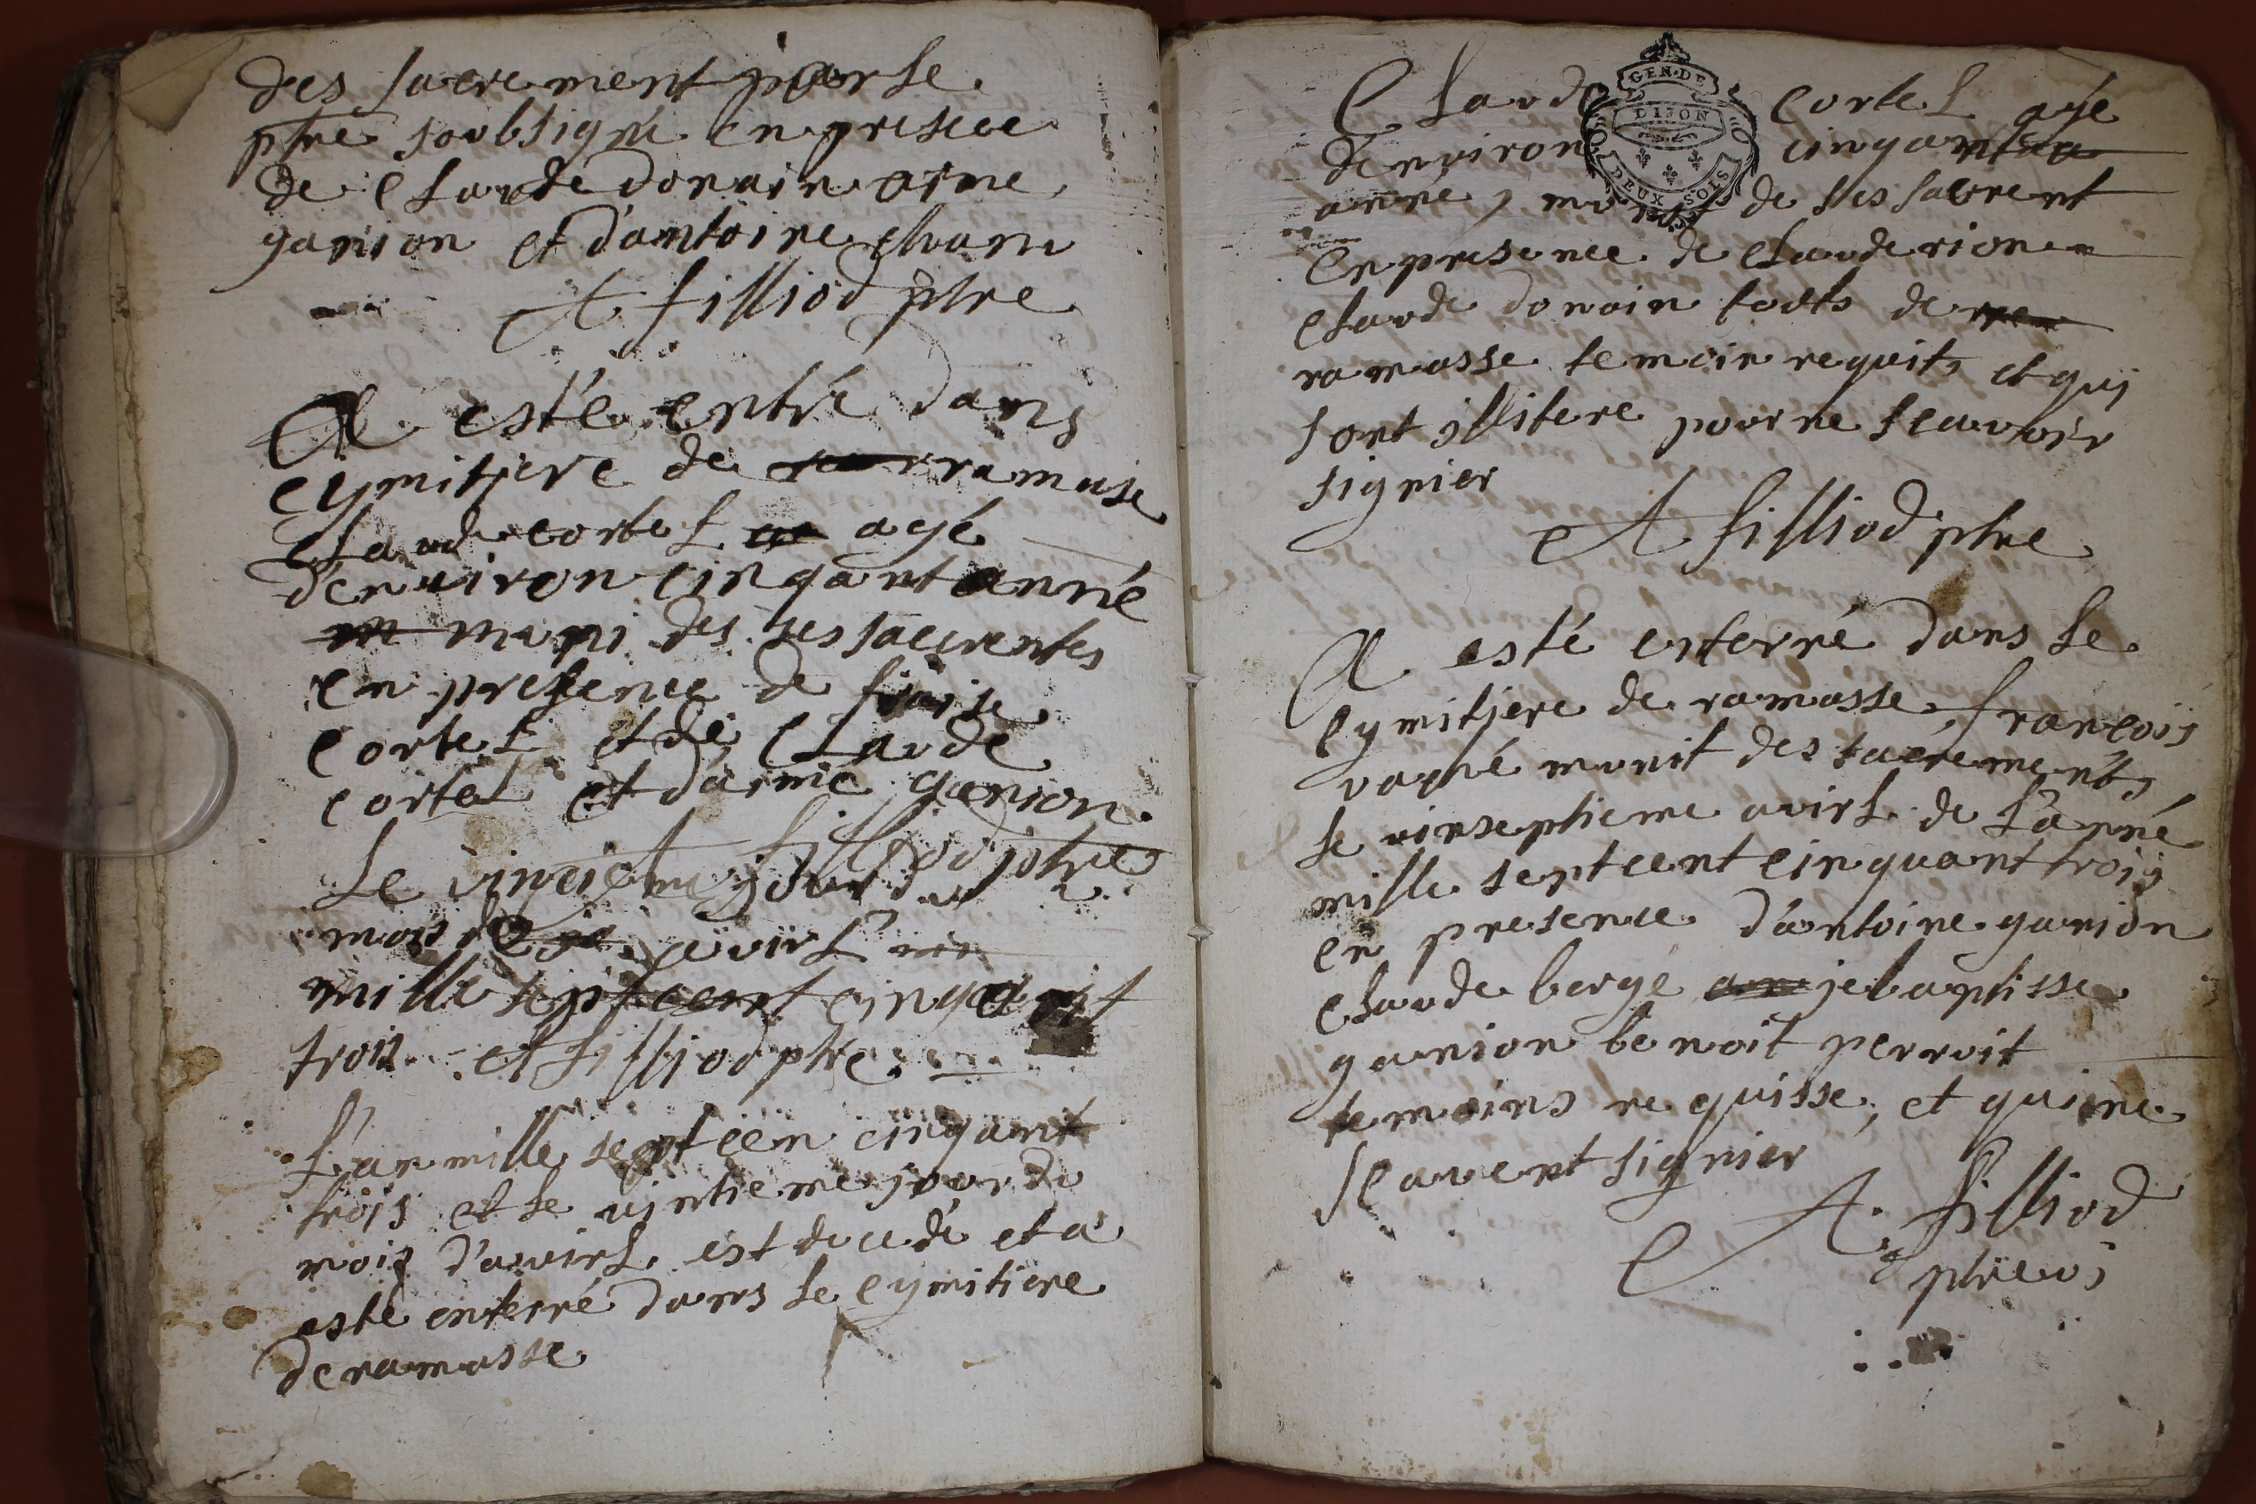 des sacrement par le
ptre soubsigné en presece
de Claude donain aime
ganion et d'antoine
A filliod ptre
A esté entré dans
cymitjere de ramase
Claude cortel agé
d'enuiron cinqant anné
muni des ses sacrentes
en presence de
cortel et de Claude
cortel et d'aimé ganion.
A filliod ptre
Le jour du
mois de avirl
mille septcent cinqant
trois A filliod ptre
L'an mille septcen cinqant
trois et le vintieme jour du
mois d'avirl est decedé et a
esté enterré dans le cymitiere
de ramasse
Claude cortel agé
GEN. DE
DIJON
DEUX SOLS
d'enuiron cinqant
anné munit de ses sacrent
en presence de Claude rion
Claude donain touts de
ramasse temoin requit et qui
sont illitere pour ne scauvoir
signier
A filliod ptre
A esté enterré dans le
cymitjere de ramasse francois
vaché munit des sacrements
le vinseptieme avirl de l'anné
mille septcent cinquant trois
en presence d'antoine ganion
Claude bergé je baptisse
ganion benoit perroit
temoins requisse, et qui ne
scavent signier
A. filliod
ptre